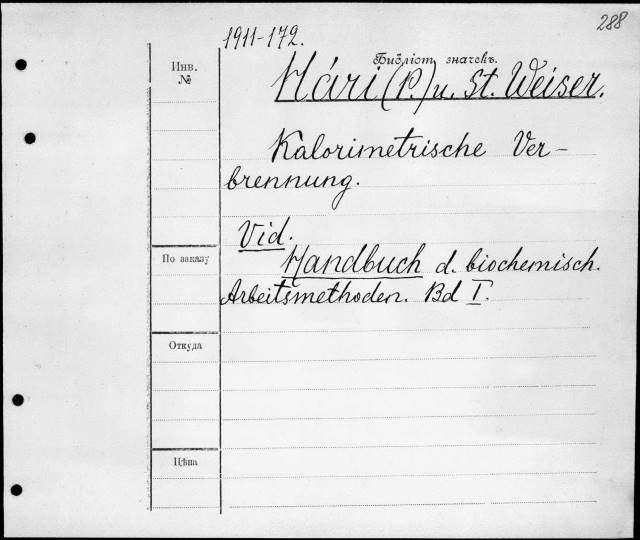 288
1911-172.
Инв.
№
Библіот. значекъ.
Hári (P.) u. St. Weiser.
Kalorimetrische Ver-
brennung.
Vid.
По заказу
Handbuch d. biochemisch.
Arbeitsmethoden. Bd I.
Откуда
Цѣна